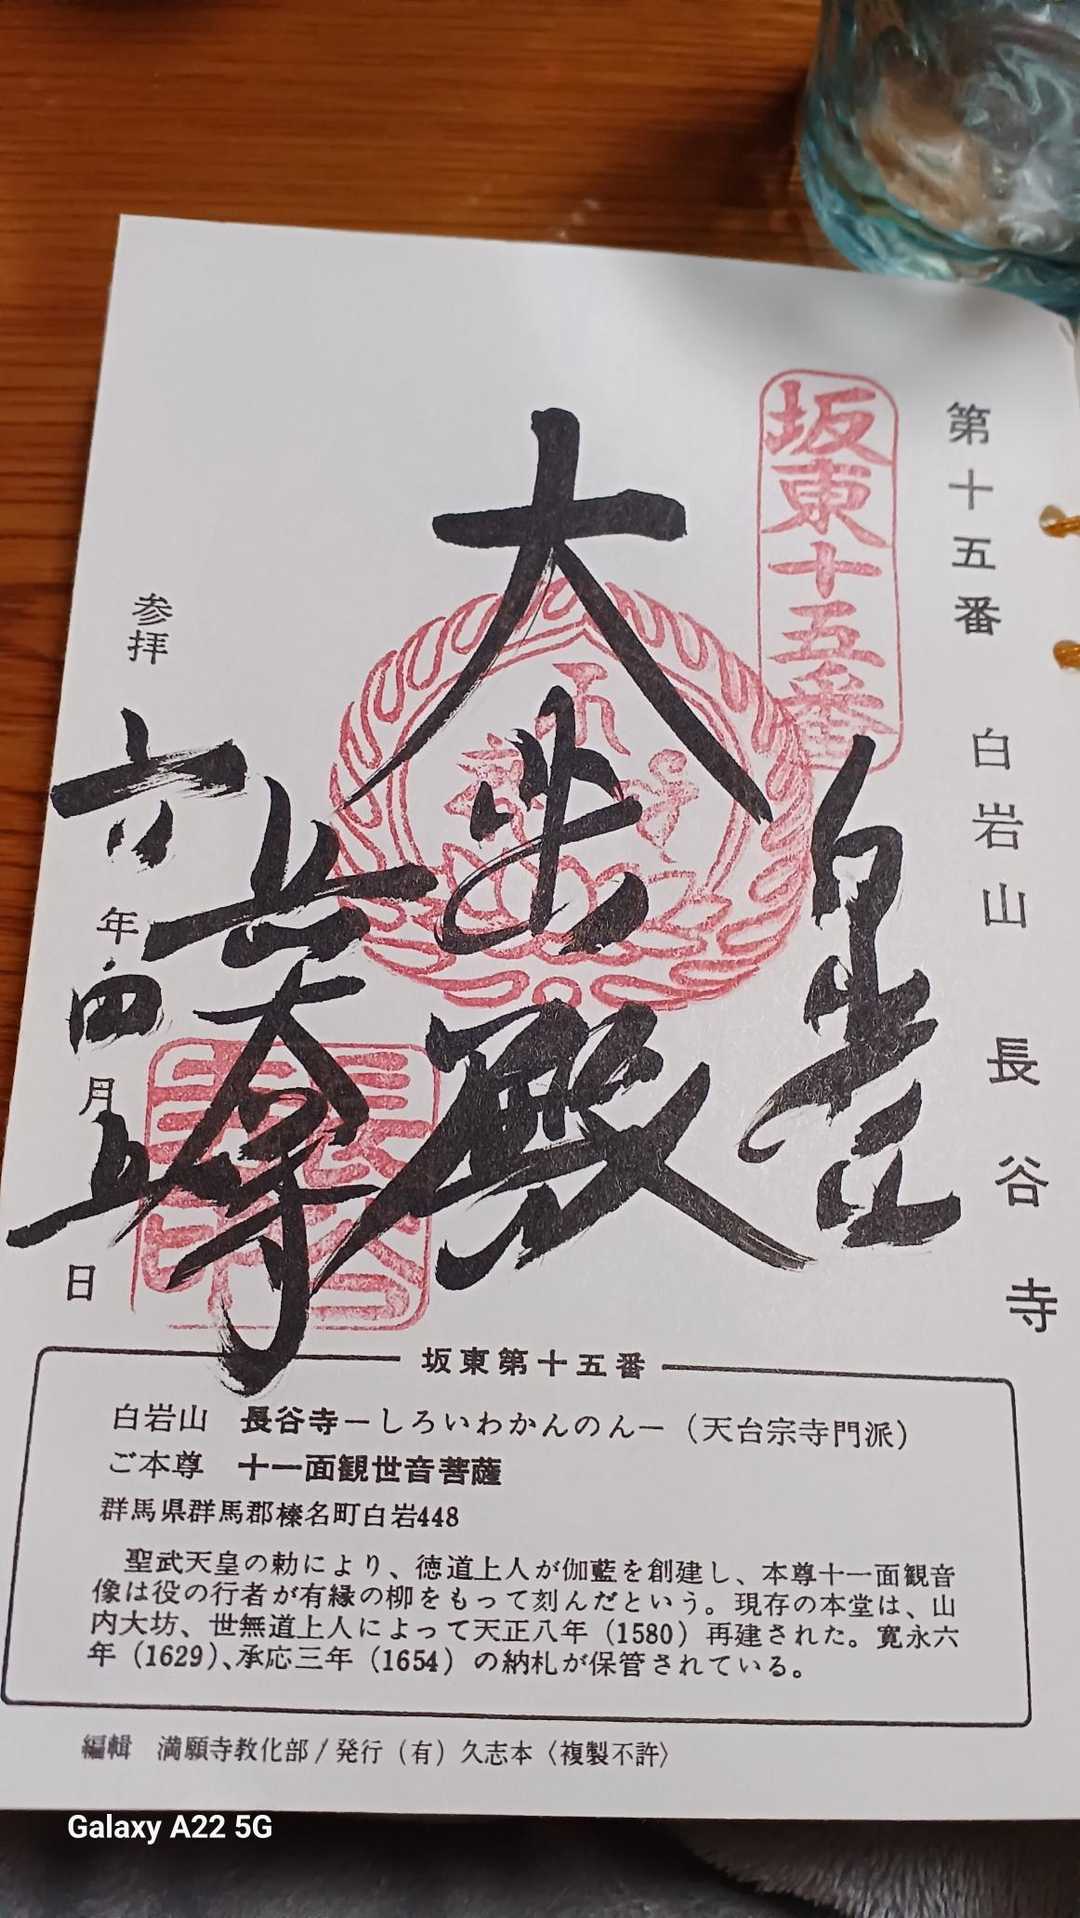 第十五番 白岩山 長谷寺
坂東十五番
大悲殿
長谷寺
参拝 六年四月 日
坂東第十五番
白岩山 長谷寺－しろいわかんのん－（天台宗寺門派）
ご本尊 十一面観世音菩薩
群馬県群馬郡榛名町白岩448
聖武天皇の勅により、徳道上人が伽藍を創建し、本尊十一面観音
像は役の行者が有縁の柳をもって刻んだという。現存の本堂は、山
内大坊、世無道上人によって天正八年（1580）再建された。寛永六
年（1629）、承応三年（1654）の納札が保管されている。
編輯 満願寺教化部/発行（有）久志本〈複製不許〉
Galaxy A22 5G